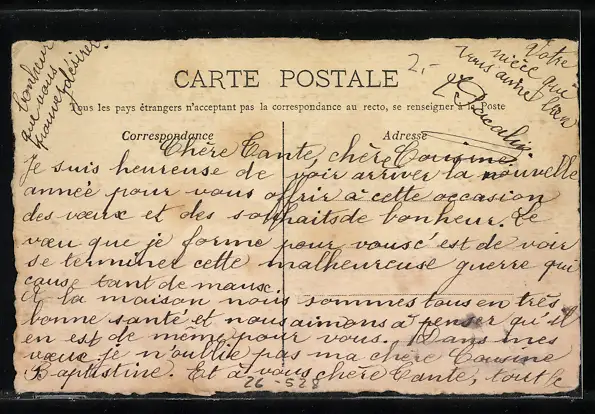 CARTE POSTALE
Tous les pays étrangers n'acceptant pas la correspondance au recto, se renseigner à la Poste
Correspondance
Adresse
2,-
Chère Tante, chère Cousine.
Je suis heureuse de voir arriver la nouvelle
année pour vous offrir à cette occasion
des vœux et des souhaits de bonheur. Le
vœu que je forme pour vous c'est de voir
se terminer cette malheureuse guerre qui
cause tant de maux.
A la maison nous sommes tous en très
bonne santé et nous aimons à penser qu'il
en est de même pour vous. Dans mes
vœux je n'oublie pas ma chère Cousine
Baptistine. Et à vous chère Tante, tout le
bonheur
que vous
pouvez désirer.
Votre
nièce qui
vous aime bien
26-528